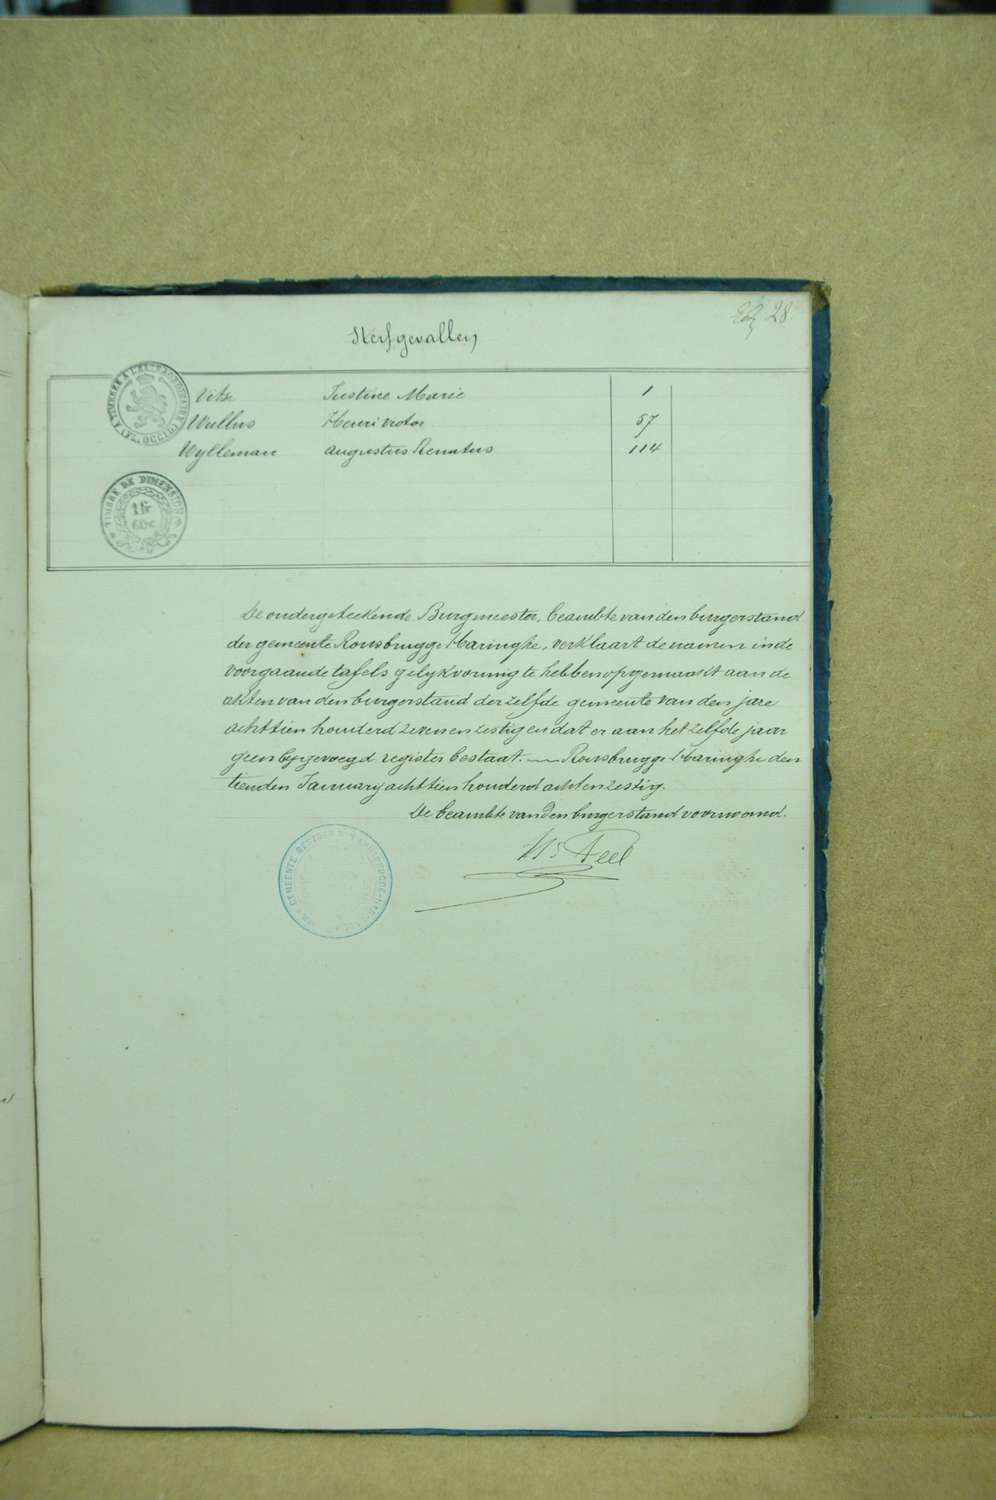 28
Sterfgevallen
Vitse Justine Marie 1
Wullus Henri Victor 57
Wylleman Augustus Renatus 114
TIMBRE DE DIMENSION
1 fr
60 c
De ondergeteekende Burgmeester, beambte van den burgerstand
der gemeente Rousbrugge Haringhe, verklaart de namen in de
voorgaande tafels gelykvormig te hebben opgemaakt aan de
akten van den burgerstand derzelfde gemeente van den jare
achttien honderd zeven en zestig en dat er aan het zelfde jaar
geen bygevoegd register bestaat. — Rousbrugge Haringhe den
tienden January achttien honderd acht en zestig.
De beambte van den burgerstand voornoemd.